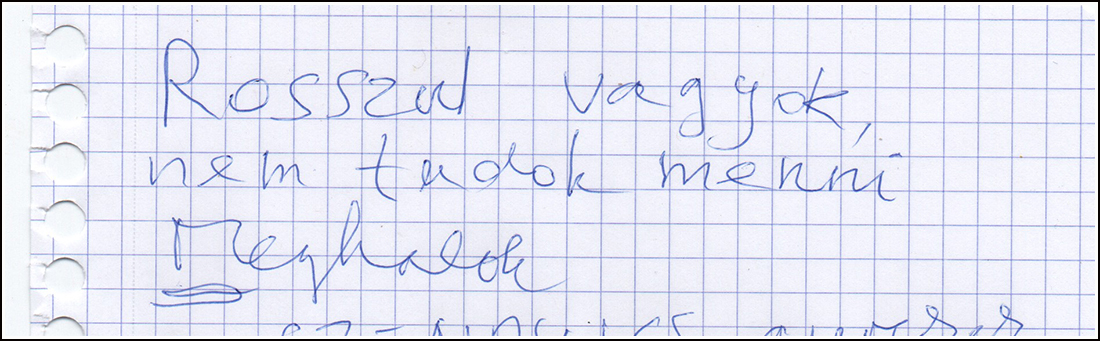 Rosszul vagyok,
nem tudok menni
Meghalok